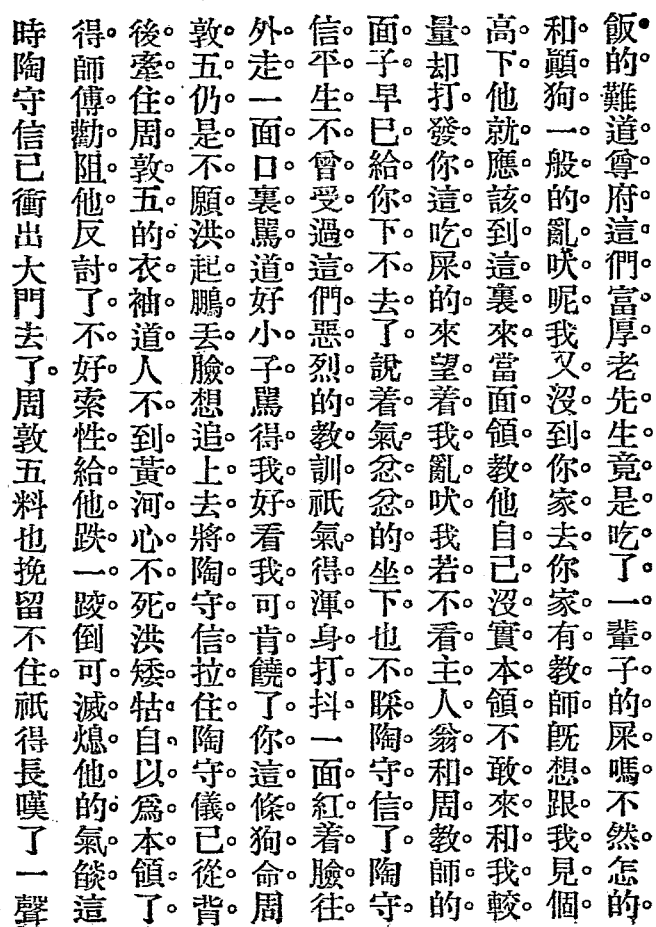 飯的難道尊府這們富厚老先生竟是吃了一輩子的屎嗎不然怎的
和顚狗一般的亂吠呢我又沒到你家去你家有教師旣想跟我見個
高下他就應該到這裏來當面領教他自己沒實本領不敢來和我較
量却打發你這吃屎的來望着我亂吠我若不看主人翁和周教師的
面子早已給你下不去了說着氣忿忿的坐下也不睬陶守信了陶守
信平生不曾受過這們惡烈的教訓祇氣得渾身打抖一面紅着臉往
外走一面口裏罵道好小子罵得我好看我可肯饒了你這條狗命周
敦五仍是不願洪起鵬丟臉想追上去將陶守信拉住陶守儀已從背
後牽住周敦五的衣袖道人不到黃河心不死洪矮牯自以爲本領了
得師傅勸阻他反討了不好索性給他跌一跤倒可滅熄他的氣燄這
時陶守信已衝出大門去了周敦五料也挽留不住祇得長嘆了一聲